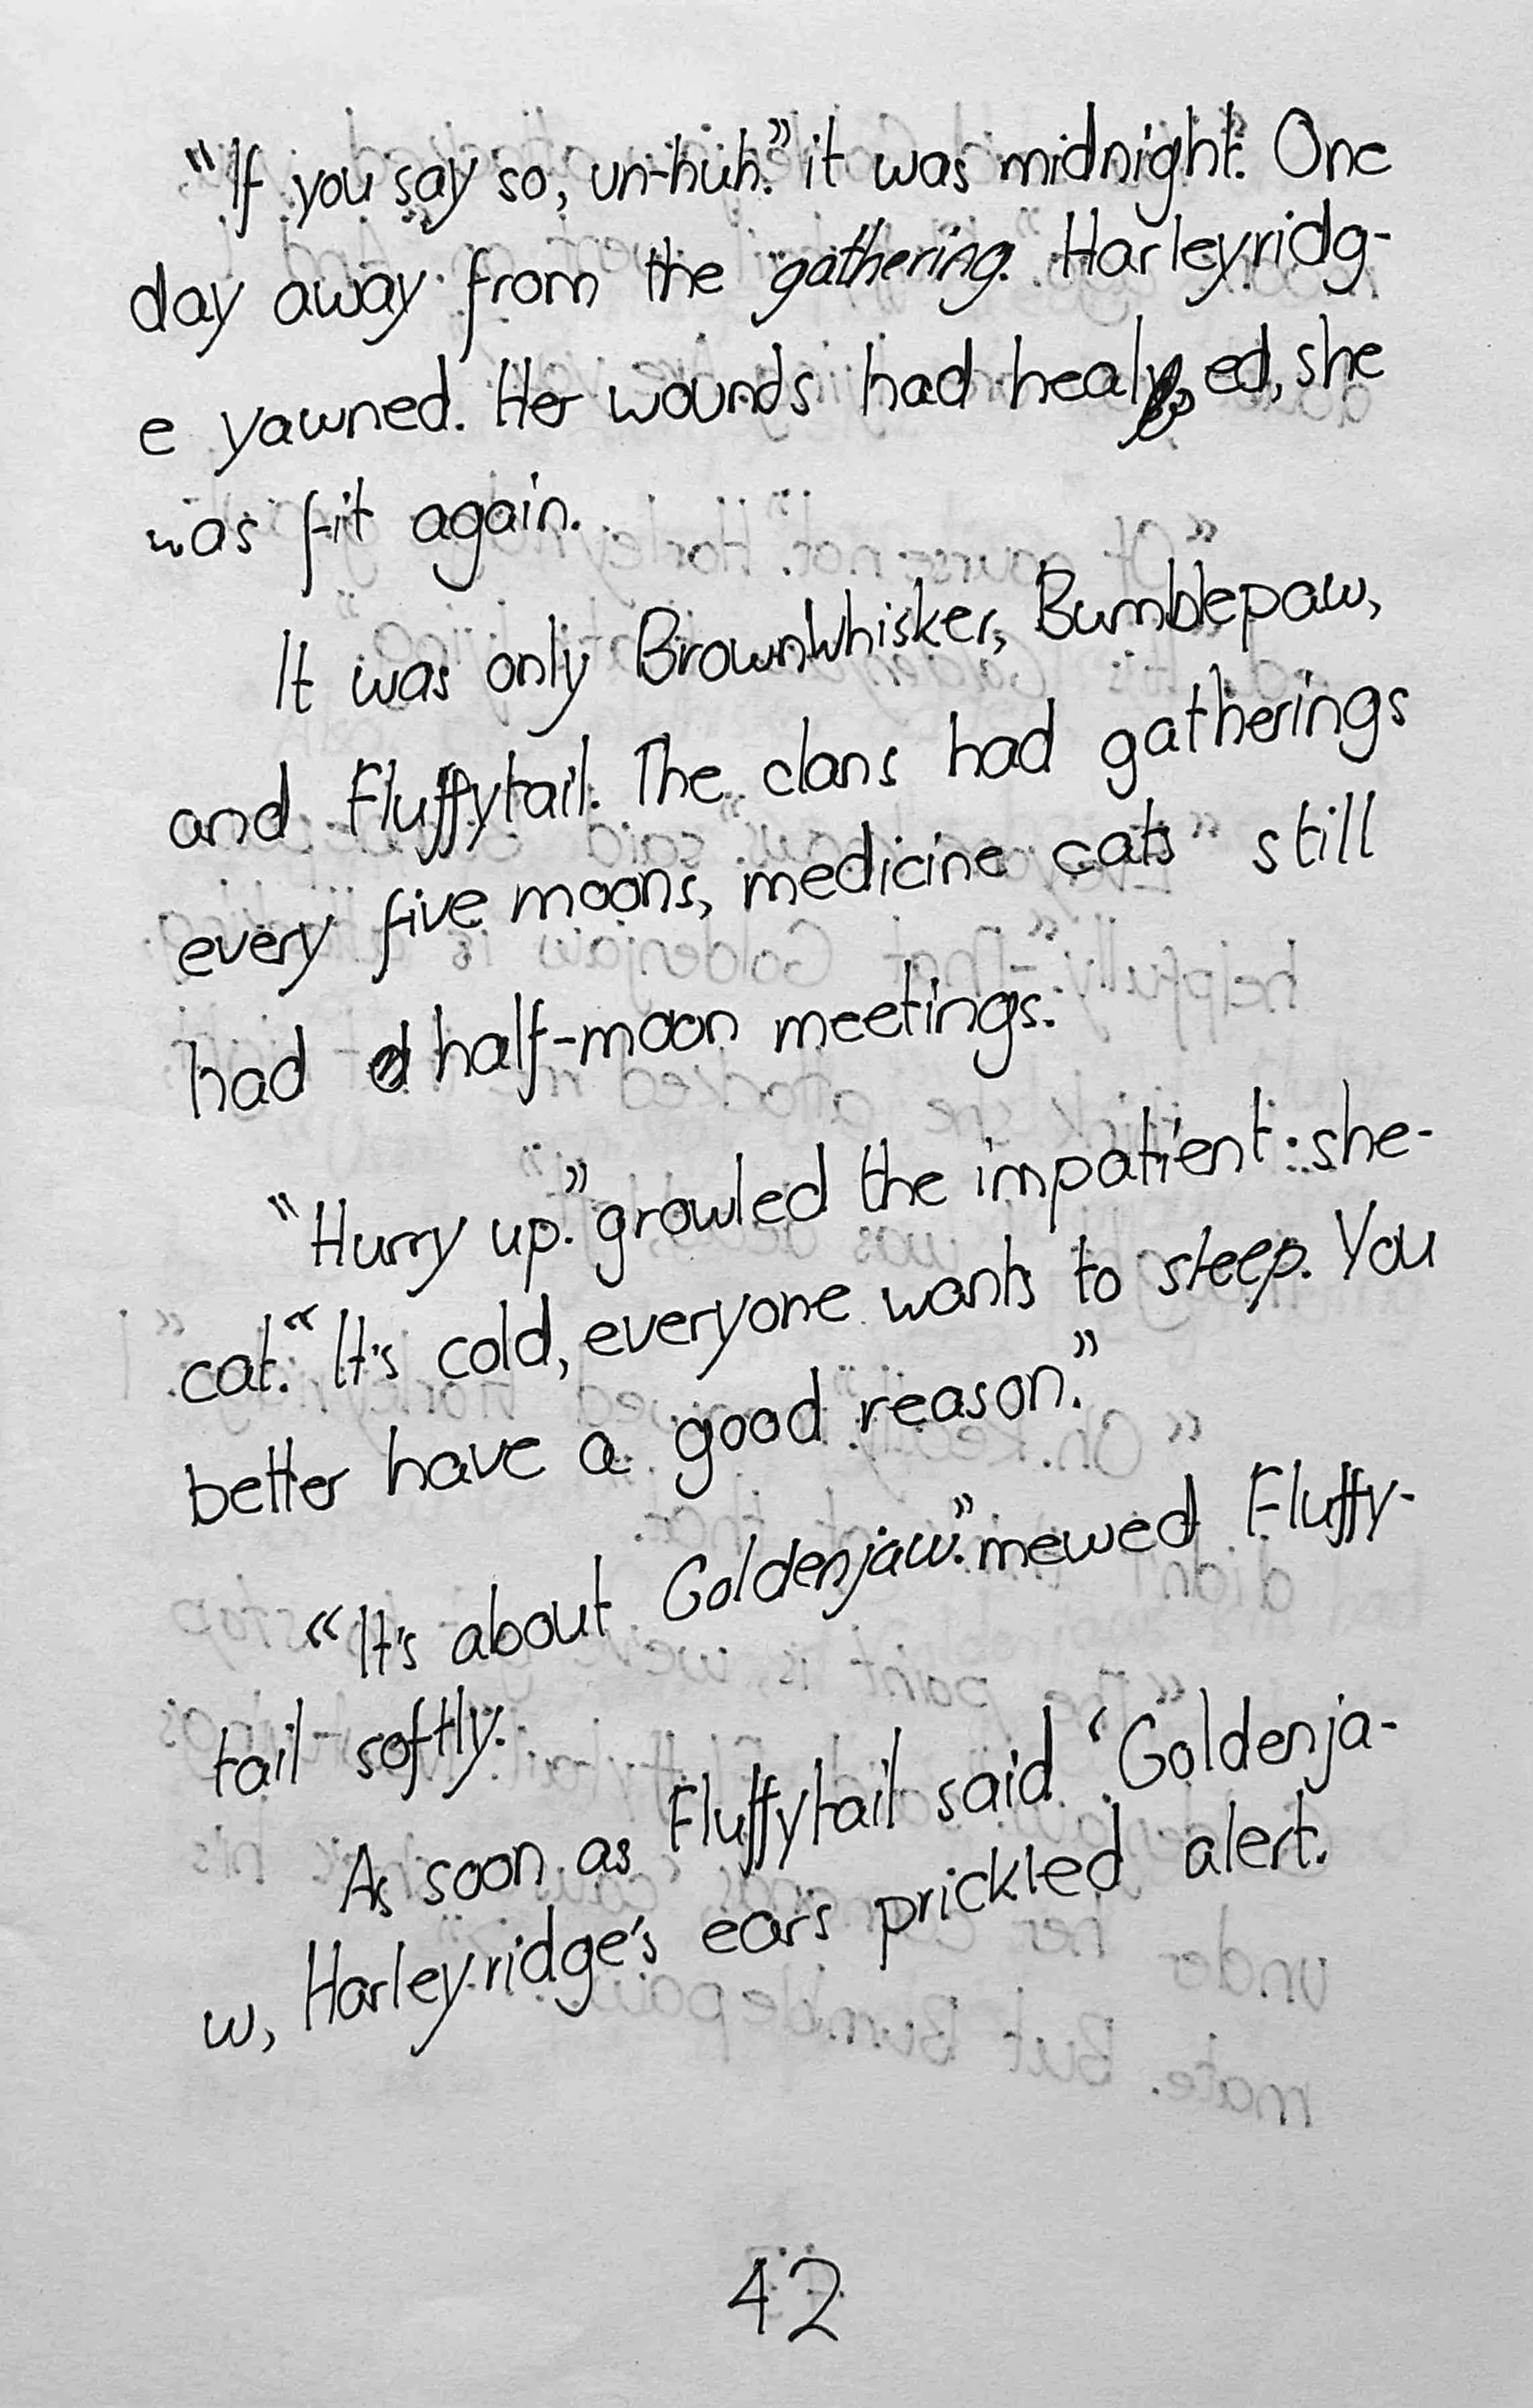 “If you say so, un-huh.” it was midnight. One
day away from the gathering. Harleyridg-
e yawned. Her wounds had healed, she
was fit again.
It was only BrownWhisker, Bumblepaw,
and Fluffytail. The clans had gatherings
every five moons, medicine cats still
had half-moon meetings.
“Hurry up.” growled the impatient she-
cat. “It's cold, everyone wants to sleep. You
better have a good reason.”
“It's about Goldenjaw.” mewed Fluffy-
tail softly.
As soon as Fluffytail said ‘Goldenja-
w, Harleyridge's ears prickled alert.
42